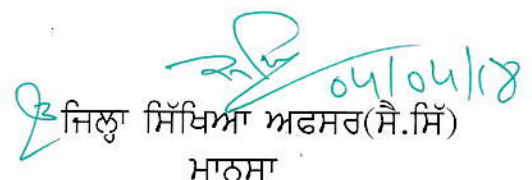 04/04/18
ਜਿਲ੍ਹਾ ਸਿੱਖਿਆ ਅਫਸਰ(ਸੈ.ਸਿੱ)
ਮਾਨਸਾ